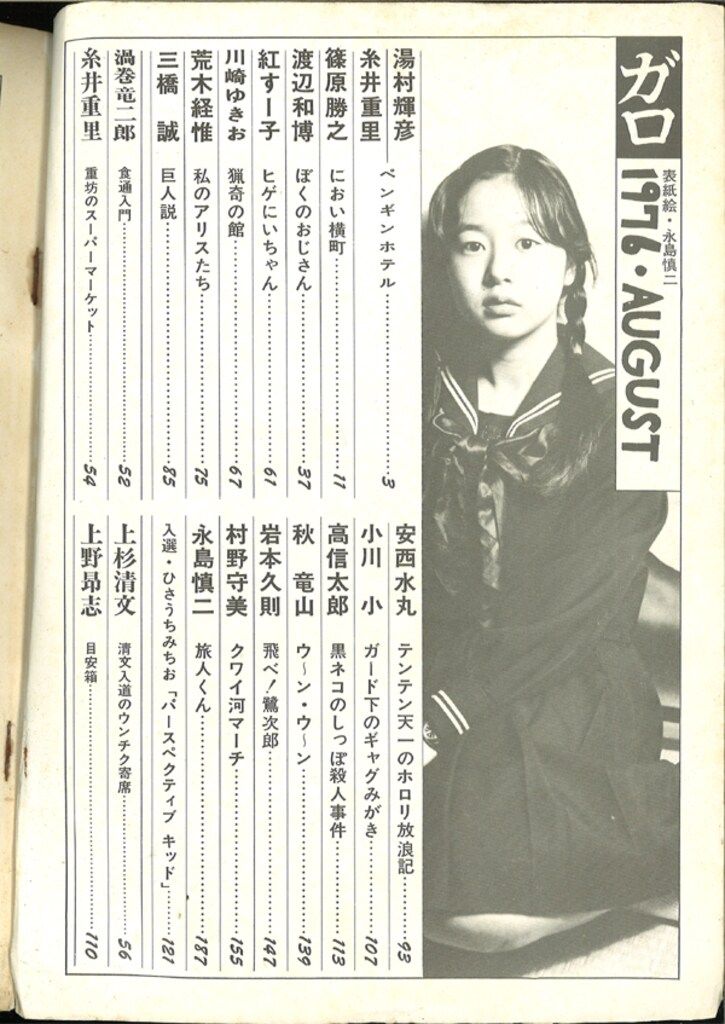 ガロ
1976・AUGUST
表紙絵・永島慎二
湯村輝彦
糸井重里
ペンギンホテル……3
篠原勝之 におい横町……11
渡辺和博 ぼくのおじさん……37
紅すー子 ヒゲにいちゃん……61
川崎ゆきお 猟奇の館……67
荒木経惟 私のアリスたち……75
三橋 誠 巨人説……85
渦巻竜二郎 食通入門……52
糸井重里 重坊のスーパーマーケット……54
安西水丸 テンテン天一のホロリ放浪記……93
小川 小 ガード下のギャグみがき……107
高信太郎 黒ネコのしっぽ殺人事件……113
秋 竜山 ウ〜ン・ウ〜ン……139
岩本久則 飛べ!鷺次郎……147
村野守美 クワイ河マーチ……155
永島慎二 旅人くん……187
入選・ひさうちみちお「パースペクティブ キッド」……121
上杉清文 清文入道のウンチク寄席……56
上野昻志 目安箱……110